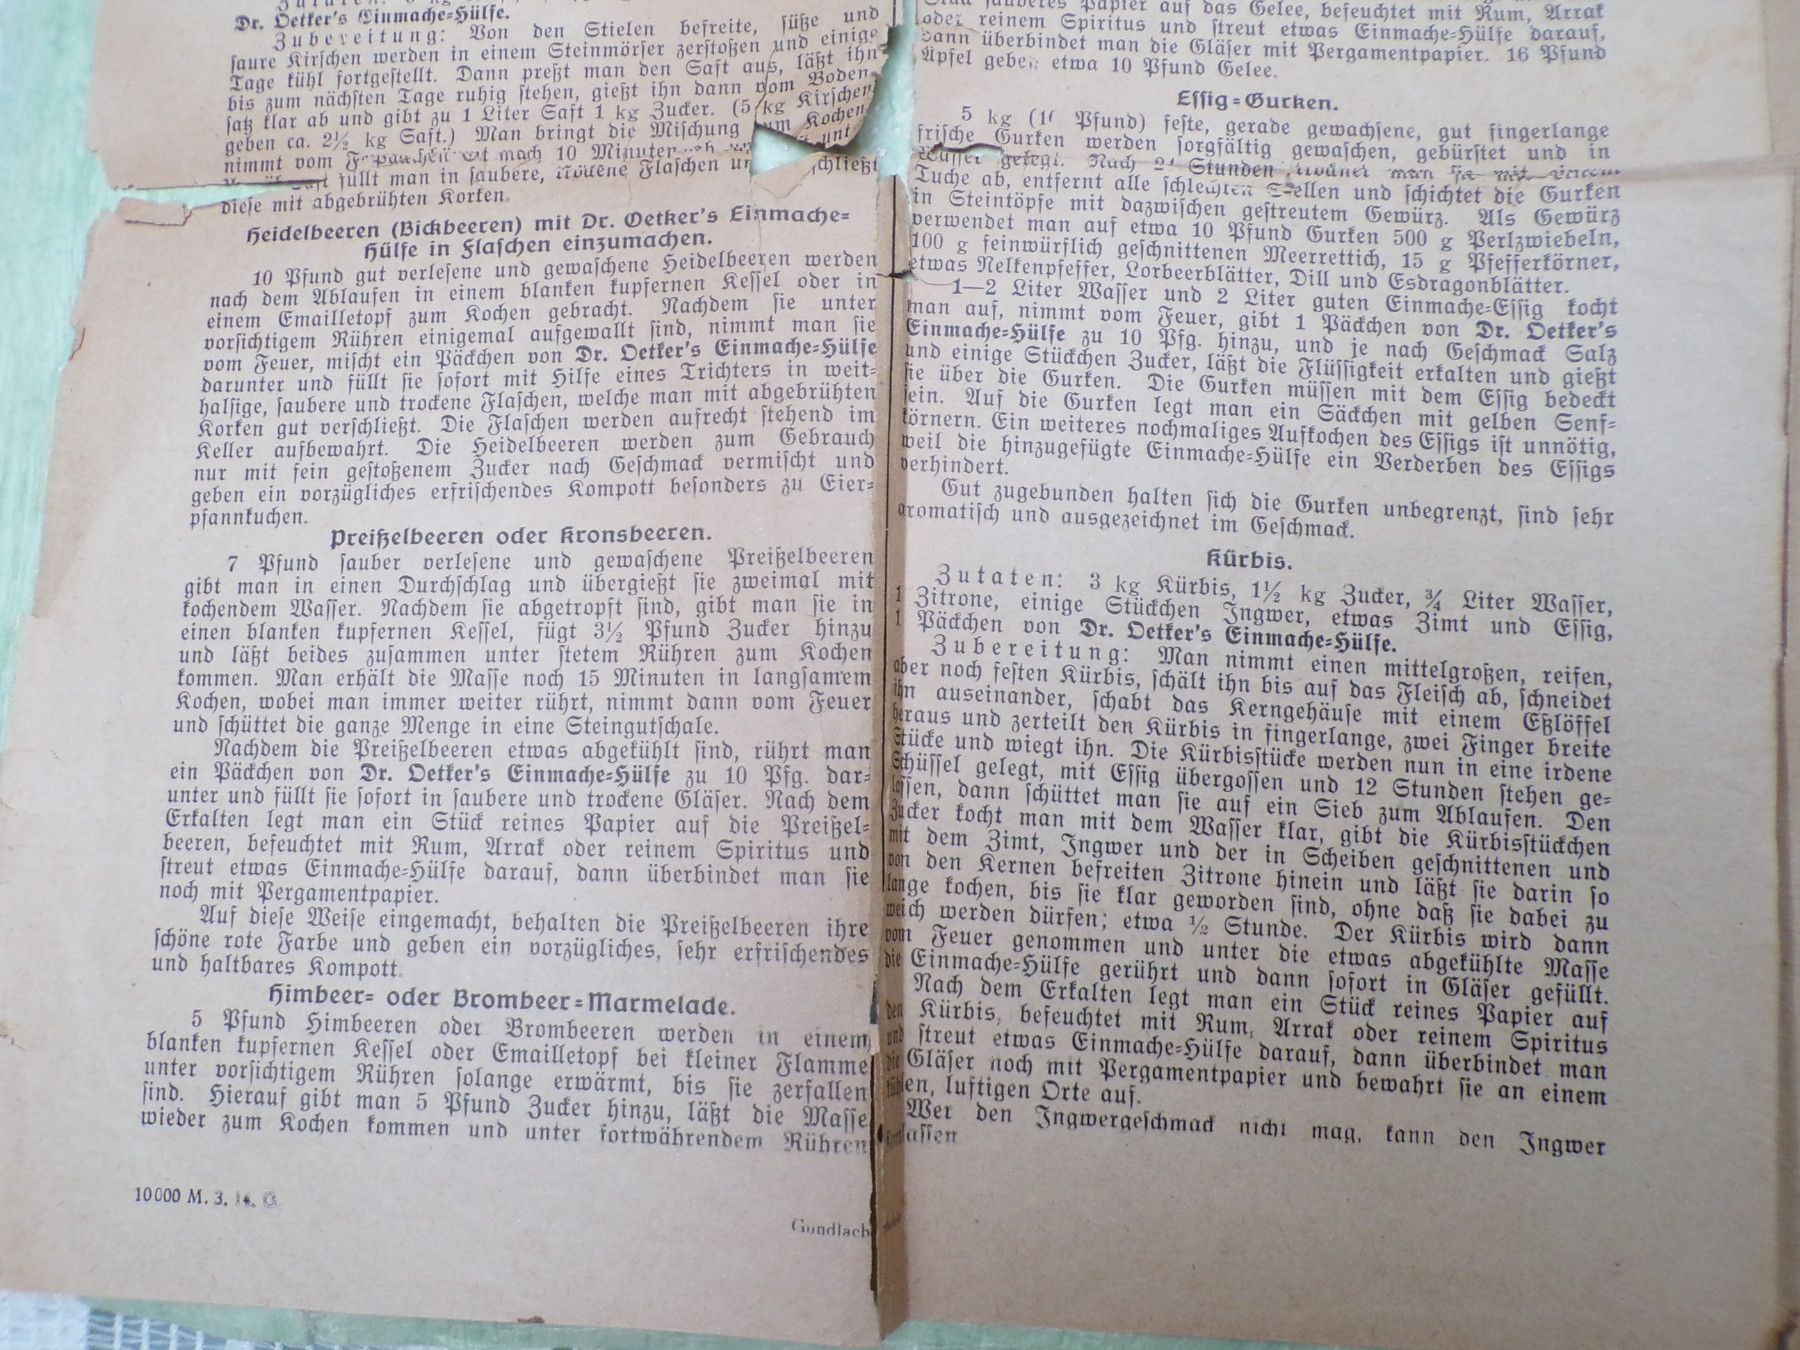 Dr. Oetker's Einmache-Hülfe.
Zubereitung: Von den Stielen befreite, süße und
saure Kirschen werden in einem Steinmörser zerstoßen und einige
Tage kühl fortgestellt. Dann preßt man den Saft aus, läßt ihn
bis zum nächsten Tage ruhig stehen, gießt ihn dann vom Boden-
satz klar ab und gibt zu 1 Liter Saft 1 kg Zucker. (5 kg Kirschen
geben ca. 2½ kg Saft.) Man bringt die Mischung zum Kochen,
nimmt vom nach 10 Minuten
Saft füllt man in saubere, Flaschen schließt
diese mit abgebrühten Korken.
Heidelbeeren (Bickbeeren) mit Dr. Oetker's Einmache-
Hülfe in Flaschen einzumachen.
10 Pfund gut verlesene und gewaschene Heidelbeeren werden
nach dem Ablaufen in einem blanken kupfernen Kessel oder in
einem Emailletopf zum Kochen gebracht. Nachdem sie unter
vorsichtigem Rühren einigemal aufgewallt sind, nimmt man sie
vom Feuer, mischt ein Päckchen von Dr. Oetker's Einmache-Hülfe
darunter und füllt sie sofort mit Hilfe eines Trichters in weit-
halsige, saubere und trockene Flaschen, welche man mit abgebrühten
Korken gut verschließt. Die Flaschen werden aufrecht stehend im
Keller aufbewahrt. Die Heidelbeeren werden zum Gebrauch
nur mit fein gestoßenem Zucker nach Geschmack vermischt und
geben ein vorzügliches erfrischendes Kompott besonders zu Eier-
pfannkuchen.
Preißelbeeren oder Kronsbeeren.
7 Pfund sauber verlesene und gewaschene Preißelbeeren
gibt man in einen Durchschlag und übergießt sie zweimal mit
kochendem Wasser. Nachdem sie abgetropft sind, gibt man sie in
einen blanken kupfernen Kessel, fügt 3½ Pfund Zucker hinzu
und läßt beides zusammen unter stetem Rühren zum Kochen
kommen. Man erhält die Masse noch 15 Minuten in langsamem
Kochen, wobei man immer weiter rührt, nimmt dann vom Feuer
und schüttet die ganze Menge in eine Steingutschale.
Nachdem die Preißelbeeren etwas abgekühlt sind, rührt man
ein Päckchen von Dr. Oetker's Einmache-Hülfe zu 10 Pfg. dar-
unter und füllt sie sofort in saubere und trockene Gläser. Nach dem
Erkalten legt man ein Stück reines Papier auf die Preißel-
beeren, befeuchtet mit Rum, Arrak oder reinem Spiritus und
streut etwas Einmache-Hülfe darauf, dann überbindet man sie
noch mit Pergamentpapier.
Auf diese Weise eingemacht, behalten die Preißelbeeren ihre
schöne rote Farbe und geben ein vorzügliches, sehr erfrischendes
und haltbares Kompott.
Himbeer- oder Brombeer-Marmelade.
5 Pfund Himbeeren oder Brombeeren werden in einem
blanken kupfernen Kessel oder Emailletopf bei kleiner Flamme
unter vorsichtigem Rühren solange erwärmt, bis sie zerfallen
sind. Hierauf gibt man 5 Pfund Zucker hinzu, läßt die Masse
wieder zum Kochen kommen und unter fortwährendem Rühren
10000 M. 3.
Gundlach
Stück sauberes Papier auf das Gelee, befeuchtet mit Rum, Arrak
oder reinem Spiritus und streut etwas Einmache-Hülfe darauf,
dann überbindet man die Gläser mit Pergamentpapier. 16 Pfund
Äpfel geben etwa 10 Pfund Gelee.
Essig-Gurken.
5 kg (10 Pfund) feste, gerade gewachsene, gut fingerlange
frische Gurken werden sorgfältig gewaschen, gebürstet und in
Wasser gelegt. Nach 24 Stunden man sie mit
Tuche ab, entfernt alle schlechten Stellen und schichtet die Gurken
in Steintöpfe mit dazwischen gestreutem Gewürz. Als Gewürz
verwendet man auf etwa 10 Pfund Gurken 500 g Perlzwiebeln,
100 g feinwürflich geschnittenen Meerrettich, 15 g Pfefferkörner,
etwas Nelkenpfeffer, Lorbeerblätter, Dill und Esdragonblätter.
1—2 Liter Wasser und 2 Liter guten Einmache-Essig kocht
man auf, nimmt vom Feuer, gibt 1 Päckchen von Dr. Oetker's
Einmache-Hülfe zu 10 Pfg. hinzu, und je nach Geschmack Salz
und einige Stückchen Zucker, läßt die Flüssigkeit erkalten und gießt
sie über die Gurken. Die Gurken müssen mit dem Essig bedeckt
sein. Auf die Gurken legt man ein Säckchen mit gelben Senf-
körnern. Ein weiteres nochmaliges Aufkochen des Essigs ist unnötig,
weil die hinzugefügte Einmache-Hülfe ein Verderben des Essigs
verhindert.
Gut zugebunden halten sich die Gurken unbegrenzt, sind sehr
aromatisch und ausgezeichnet im Geschmack.
Kürbis.
Zutaten: 3 kg Kürbis, 1½ kg Zucker, ¾ Liter Wasser,
1 Zitrone, einige Stückchen Ingwer, etwas Zimt und Essig,
1 Päckchen von Dr. Oetker's Einmache-Hülfe.
Zubereitung: Man nimmt einen mittelgroßen, reifen,
aber noch festen Kürbis, schält ihn bis auf das Fleisch ab, schneidet
ihn auseinander, schabt das Kerngehäuse mit einem Eßlöffel
heraus und zerteilt den Kürbis in fingerlange, zwei Finger breite
Stücke und wiegt ihn. Die Kürbisstücke werden nun in eine irdene
Schüssel gelegt, mit Essig übergossen und 12 Stunden stehen ge-
lassen, dann schüttet man sie auf ein Sieb zum Ablaufen. Den
Zucker kocht man mit dem Wasser klar, gibt die Kürbisstückchen
mit dem Zimt, Ingwer und der in Scheiben geschnittenen und
von den Kernen befreiten Zitrone hinein und läßt sie darin so
lange kochen, bis sie klar geworden sind, ohne daß sie dabei zu
weich werden dürfen; etwa ½ Stunde. Der Kürbis wird dann
vom Feuer genommen und unter die etwas abgekühlte Masse
die Einmache-Hülfe gerührt und dann sofort in Gläser gefüllt.
Nach dem Erkalten legt man ein Stück reines Papier auf
den Kürbis, befeuchtet mit Rum, Arrak oder reinem Spiritus
und streut etwas Einmache-Hülfe darauf, dann überbindet man
die Gläser noch mit Pergamentpapier und bewahrt sie an einem
kühlen, luftigen Orte auf.
Wer den Ingwergeschmack nicht mag, kann den Ingwer
fortlassen